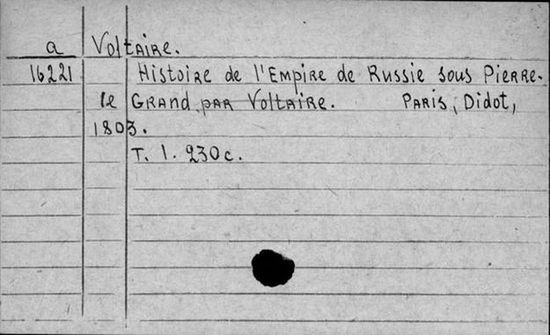 a Voltaire.
16221 Histoire de l'Empire de Russie sous Pierre-
le Grand par Voltaire. Paris, Didot,
1803.
T. 1. 230 c.